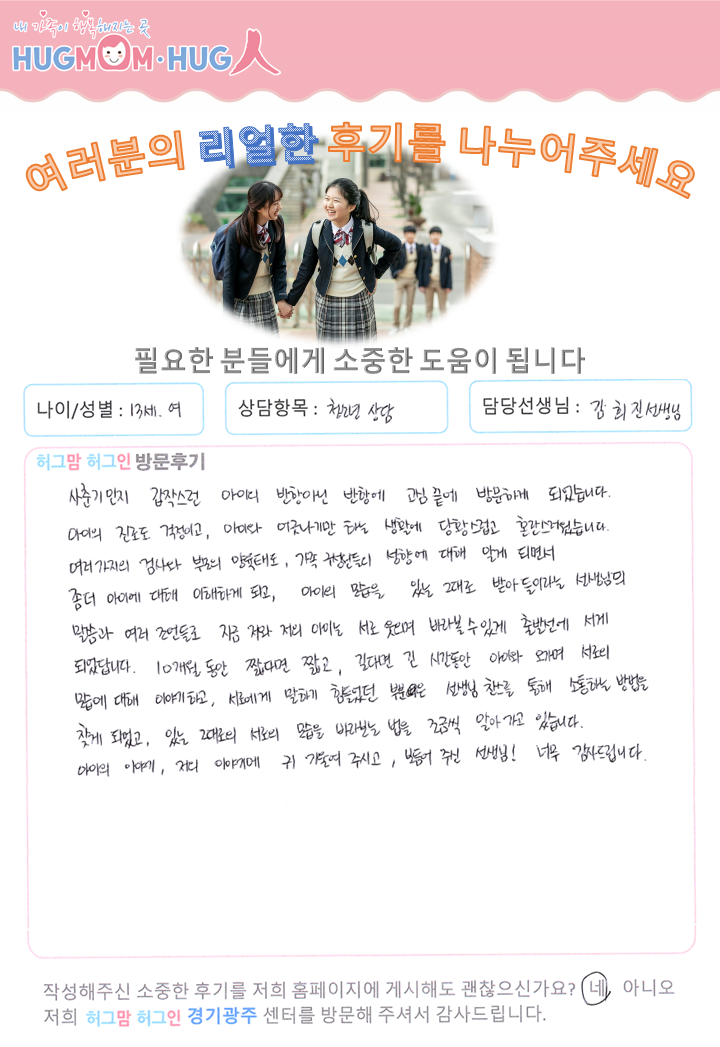 내 가족이 행복해지는 곳
HUGMOM·HUG人
여러분의 리얼한 후기를 나누어주세요
필요한 분들에게 소중한 도움이 됩니다
나이/성별 : 13세. 여
상담항목 : 청소년 상담
담당선생님 : 김희진선생님
허그맘 허그인 방문후기
사춘기인지 갑작스런 아이의 반항아닌 반항에 고심 끝에 방문하게 되었습니다.
아이의 진로도 걱정이고, 아이와 어긋나기만 하는 생활에 당황스럽고 혼란스러웠습니다.
여러가지의 검사와 부모의 양육태도, 가족 구성원들의 성향에 대해 알게 되면서
좀더 아이에 대해 이해하게 되고, 아이의 모습을 있는 그대로 받아들이라는 선생님의
말씀과 여러 조언들로 지금 저와 저의 아이는 서로 웃으며 바라볼 수 있게 출발선에 서게
되었답니다. 10개월 동안 짧다면 짧고, 길다면 긴 시간동안 아이와 오가며 서로의
모습에 대해 이야기하고, 서로에게 말하기 힘들었던 부분은 선생님 찬스를 통해 소통하는 방법을
찾게 되었고, 있는 그대로의 서로의 모습을 바라보는 법을 조금씩 알아가고 있습니다.
아이의 이야기, 저의 이야기에 귀 기울여 주시고, 보듬어 주신 선생님! 너무 감사드립니다.
작성해주신 소중한 후기를 저희 홈페이지에 게시해도 괜찮으신가요? 네, 아니오
저희 허그맘 허그인 경기광주 센터를 방문해 주셔서 감사드립니다.